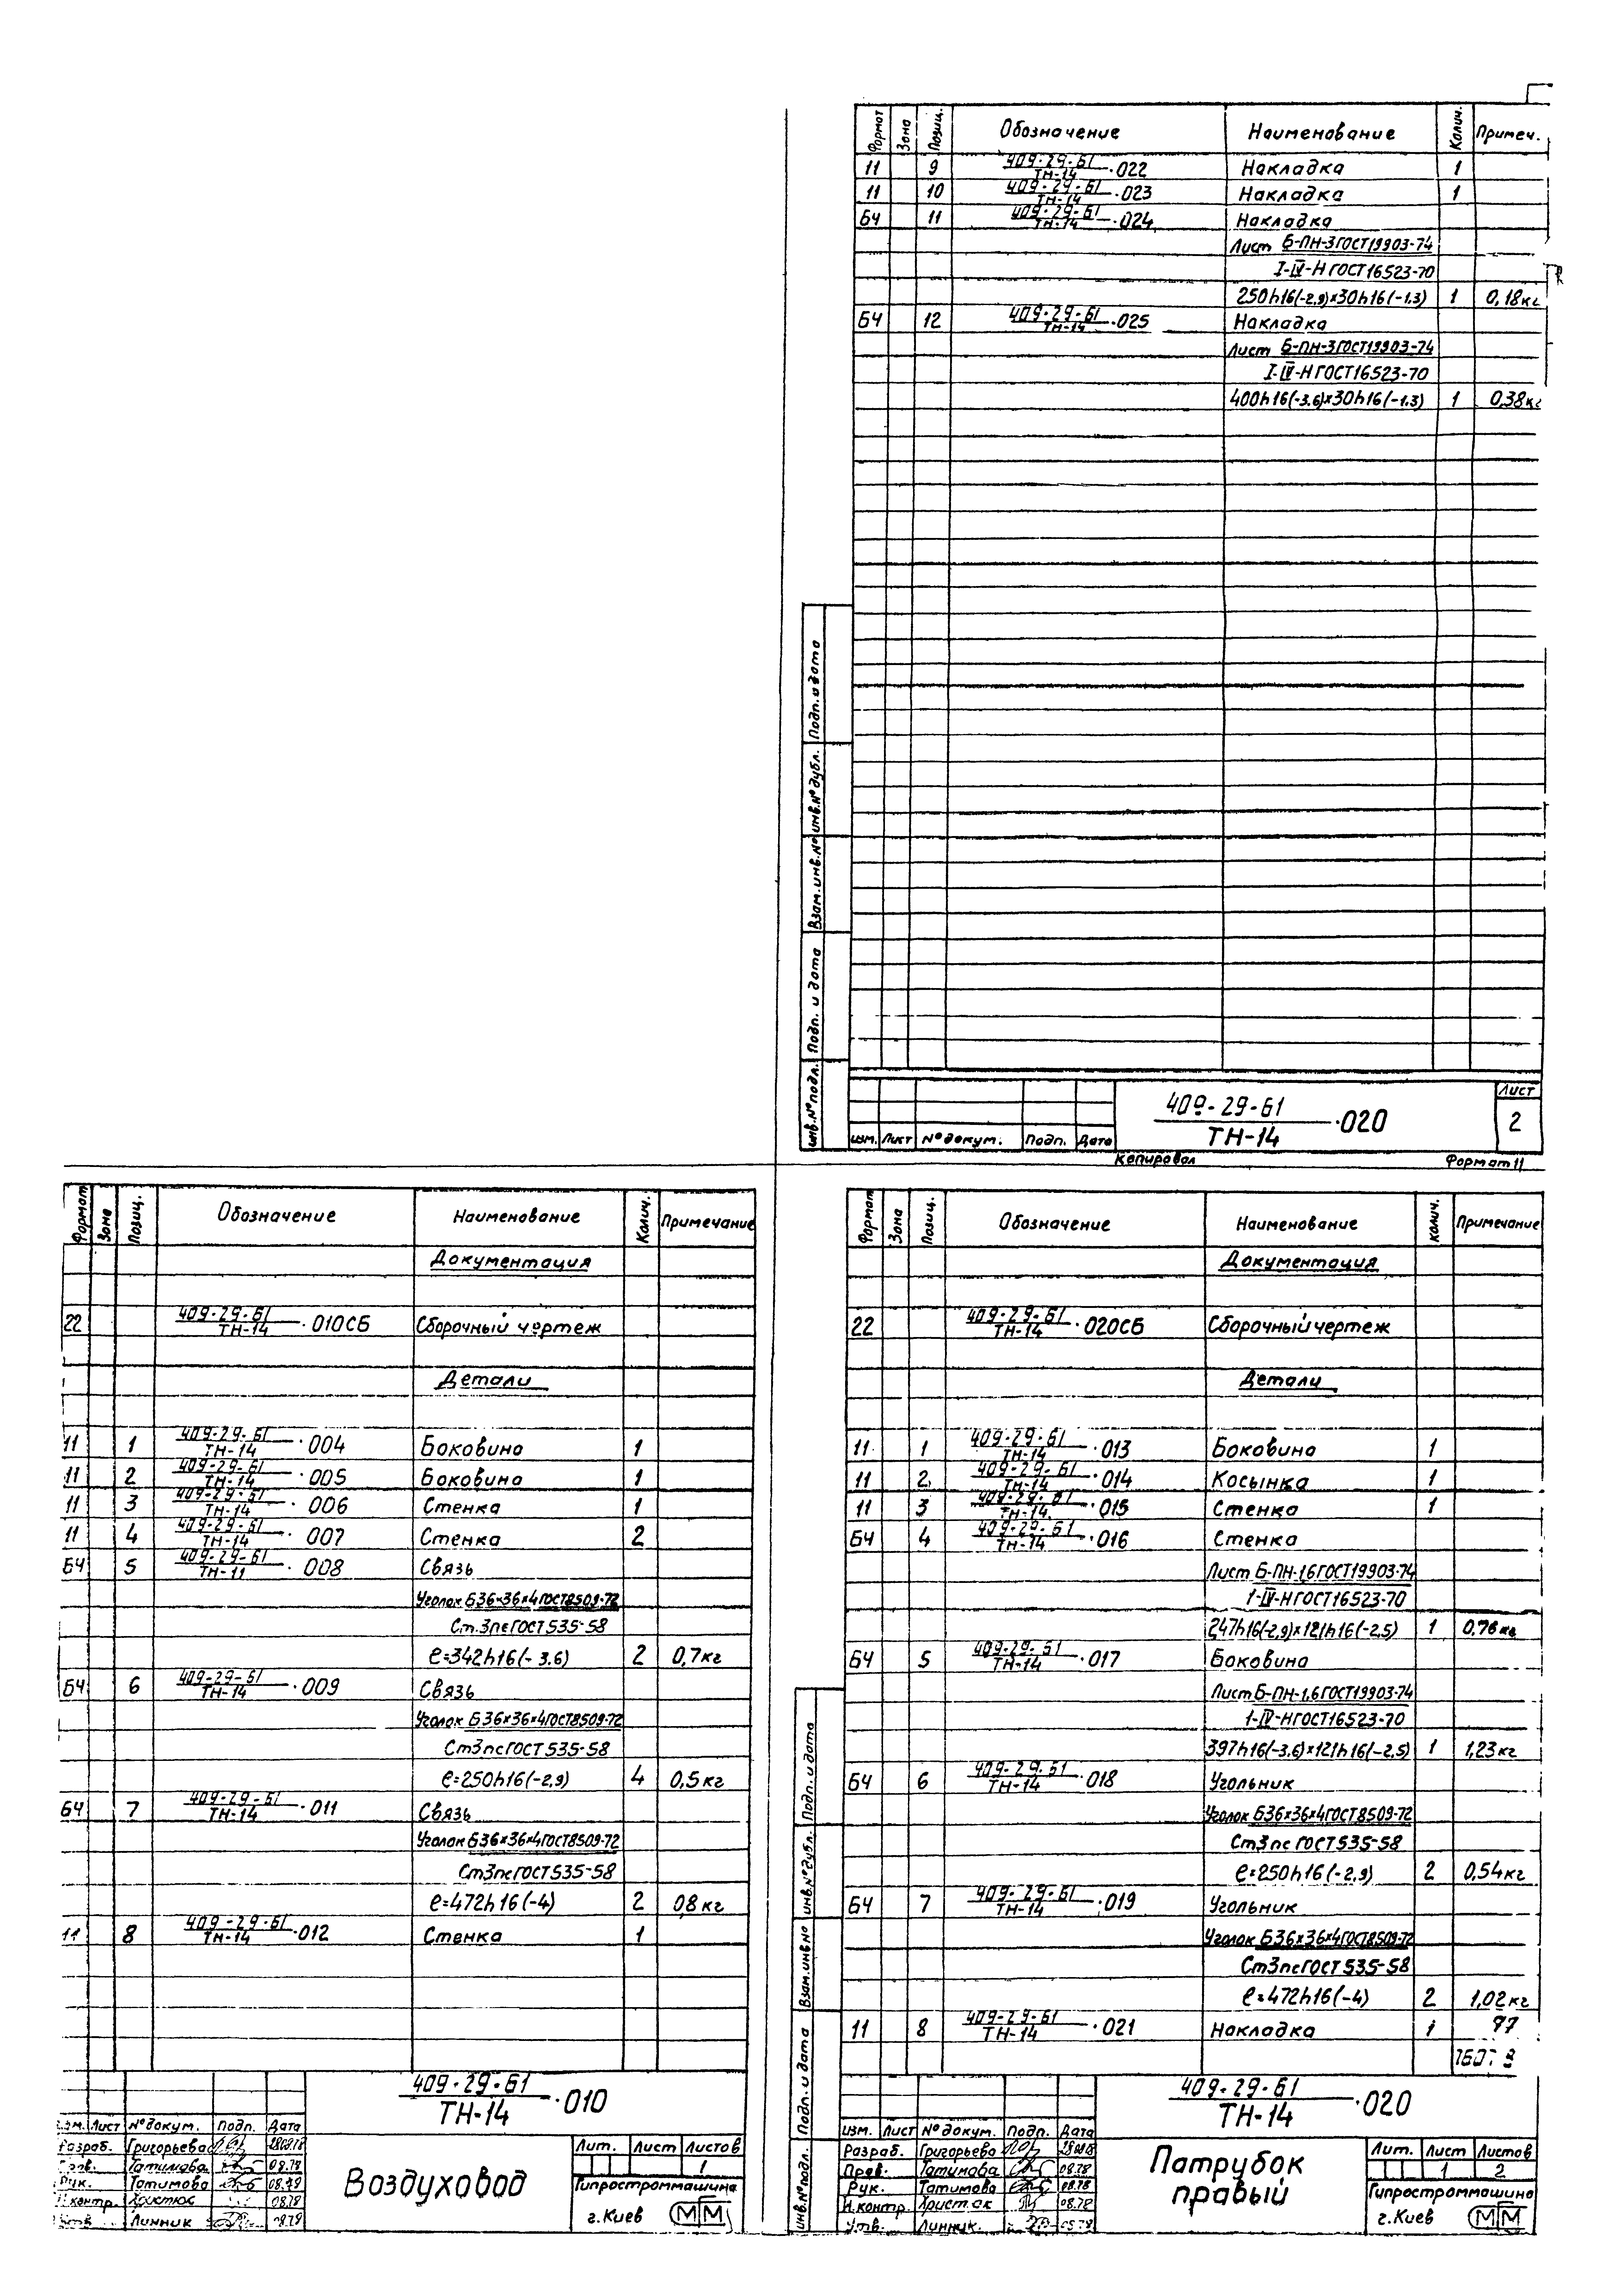 Формат Зона Позиц. Обозначение Наименование Колич. Примеч.
11 9 409-29-61/ТН-14 ·022 Накладка 1
11 10 409-29-61/ТН-14 ·023 Накладка 1
БЧ 11 409-29-61/ТН-14 ·024 Накладка
Лист Б-ПН-3ГОСТ19903-74
I-IV-Н ГОСТ16523-70
250h16(-2,9)×30h16(-1.3) 1 0,18кг
БЧ 12 409-29-61/ТН-14 ·025 Накладка
Лист Б-ПН-3ГОСТ19903-74
I-IV-НГОСТ16523-70
400h16(-3.6)×30h16(-1.3) 1 0,38кг
Подп. и дата
инв.№ дубл.
Взам.инв.№
Подп. и дата
инв.№ подл.
изм. Лист № докум. Подп. Дата
409-29-61/ТН-14 ·020
Лист
2
Копировал Формат 11
Формат Зона Позиц. Обозначение Наименование Колич. Примечание
Документация
22 409-29-61/ТН-14 ·010СБ Сборочный чертеж
Детали
11 1 409-29-61/ТН-14 ·004 Боковина 1
11 2 409-29-61/ТН-14 ·005 Боковина 1
11 3 409-29-61/ТН-14 ·006 Стенка 1
11 4 409-29-61/ТН-14 ·007 Стенка 2
БЧ 5 409-29-61/ТН-11 ·008 Связь
Уголок Б36×36×4ГОСТ8509-72
Ст.3псГОСТ535-58
ℓ=342h16(-3.6) 2 0,7кг
БЧ 6 409-29-61/ТН-14 ·009 Связь
Уголок Б36×36×4ГОСТ8509-72
Ст3псГОСТ535-58
ℓ=250h16(-2,9) 4 0,5кг
БЧ 7 409-29-61/ТН-14 ·011 Связь
Уголок Б36×36×4ГОСТ8509-72
Ст3псГОСТ535-58
ℓ=472h16(-4) 2 0,8кг
11 8 409-29-61/ТН-14 ·012 Стенка 1
409-29-61/ТН-14 ·010
Изм. Лист № докум. Подп. Дата
Разраб. Григорьева 28.08.78
Пров. Татимова 08.78
Рук. Татимова 08.79
Н.контр. Христюс 08.78
Утв. Линник 08.79
Воздуховод
Лит. Лист Листов
1
Гипростроммашина
г.Киев ММ
Формат Зона Позиц. Обозначение Наименование Колич. Примечание
Документация
22 409-29-61/ТН-14 ·020СБ Сборочный чертеж
Детали
11 1 409-29-61/ТН-14 ·013 Боковина 1
11 2 409-29-61/ТН-14 ·014 Косынка 1
11 3 409-29-61/ТН-14 ·015 Стенка 1
БЧ 4 409-29-61/ТН-14 ·016 Стенка
Лист Б-ПН-1,6ГОСТ19903-74
1-IV-НГОСТ16523-70
247h16(-2,9)×121h16(-2,5) 1 0,76кг
БЧ 5 409-29-61/ТН-14 ·017 Боковина
Лист Б-ПН-1,6ГОСТ19903-74
1-IV-НГОСТ16523-70
397h16(-3,6)×121h16(-2,5) 1 1,23кг
БЧ 6 409-29-61/ТН-14 ·018 Угольник
Уголок Б36×36×4ГОСТ8509-72
Ст3пс ГОСТ535-58
ℓ=250h16(-2,9) 2 0,54кг
БЧ 7 409-29-61/ТН-14 ·019 Угольник
Уголок Б36×36×4ГОСТ8509-72
Ст3псГОСТ535-58
ℓ=472h16(-4) 2 1,02кг
11 8 409-29-61/ТН-14 ·021 Накладка 1 97
Подп. и дата
инв.№ дубл.
Взам.инв.№
Подп. и дата
инв.№ подл.
409-29-61/ТН-14 ·020
изм. Лист № докум. Подп. Дата
Разраб. Григорьева 28.08.8
Пров. Татимова 08.78
Рук. Татимова 08.78
Н.контр. 08.78
Утв. Линник.
Патрубок
правый
Лит. Лист Листов
1 2
Гипростроммашина
г.Киев ММ